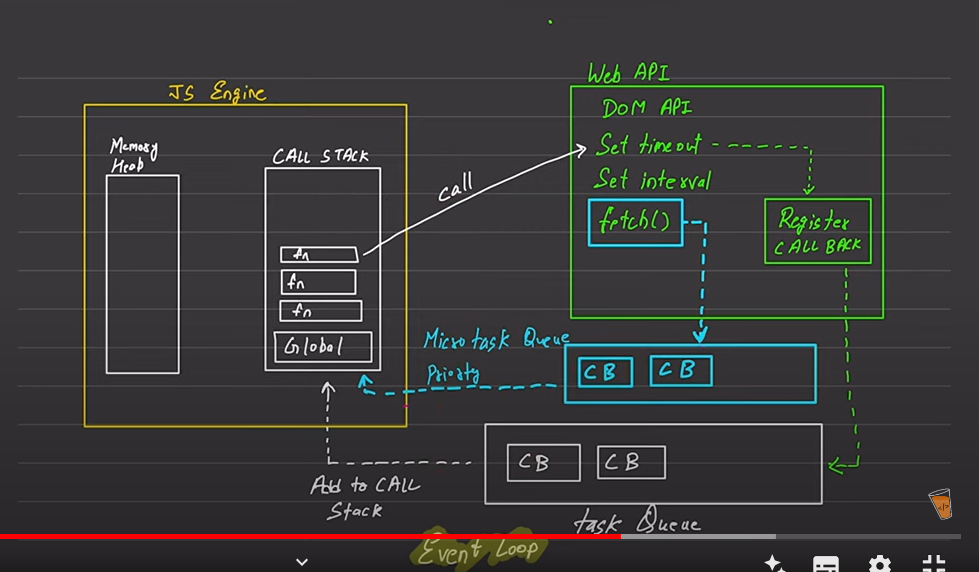 JS Engine
Memory
Heab
CALL STACK
fn
fn
fn
Global
call
Web API
DOM API
Set timeout
Set interval
fetch()
Register
CALL BACK
Microtask Queue
Priorty
CB CB
CB CB
Add to CALL
Stack
task Queue
Event Loop